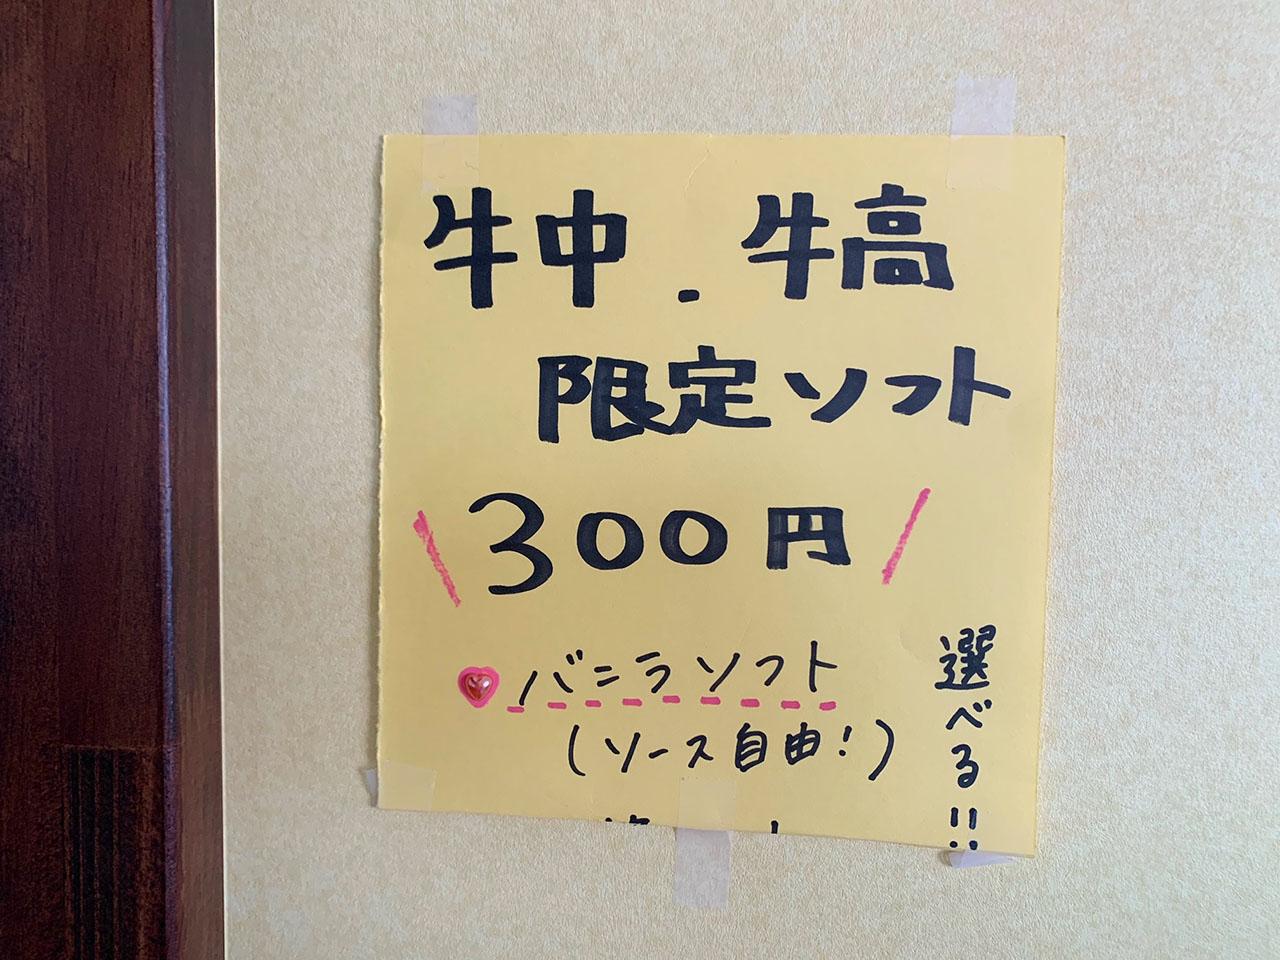 牛中．牛高
限定ソフト
300円
バニラソフト
(ソース自由!)
選べる!!